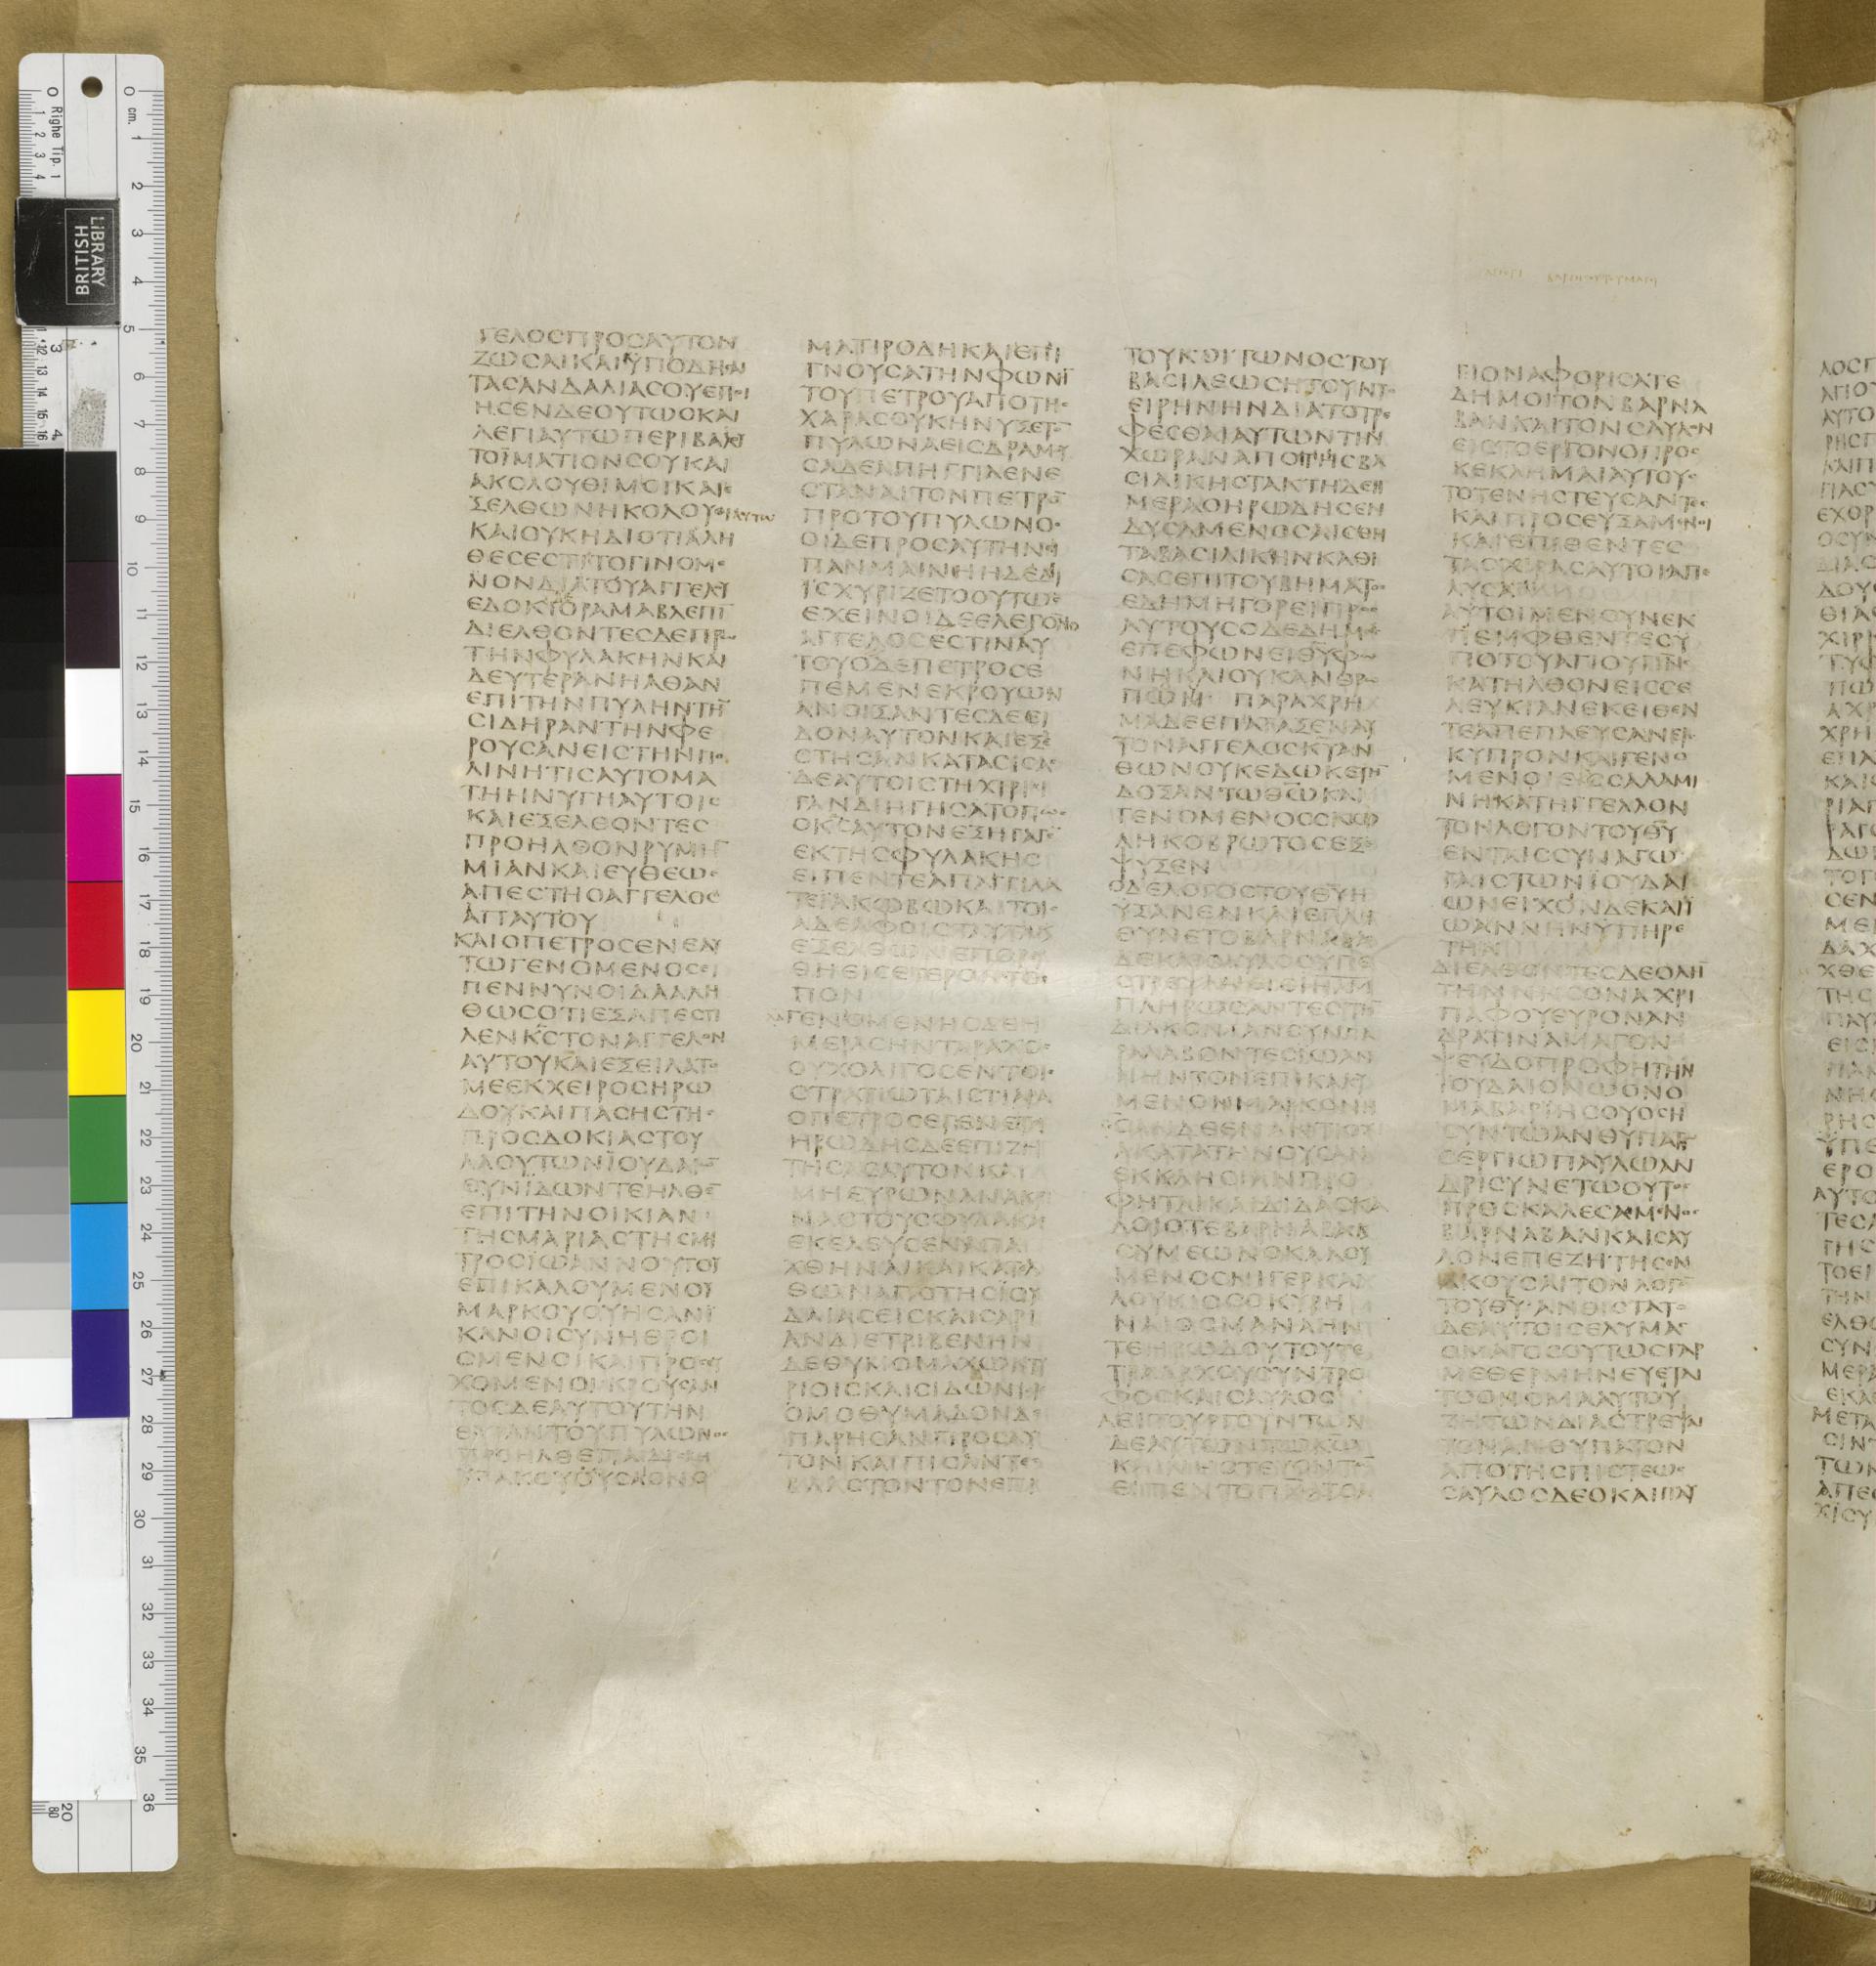 ΓΕΛΟϹΠΡΟϹΑΥΤΟΝ
ΖΩϹΑΙΚΑΙΫΠΟΔΗϹΑΙ
ΤΑϹΑΝΔΑΛΙΑϹΟΥΕΠΟΙ
ΗϹΕΝΔΕΟΥΤΩϹΚΑΙ
ΛΕΓΙΑΥΤΩΠΕΡΙΒΑΛΟΥ
ΤΟΪΜΑΤΙΟΝϹΟΥΚΑΙ
ΑΚΟΛΟΥΘΙΜΟΙΚΑΙΕ
ΞΕΛΘΩΝΗΚΟΛΟΥΘΙΑΥΤΩ
ΚΑΙΟΥΚΗΔΙΟΤΙΑΛΗ
ΘΕϹΕϹΤΙΤΟΓΙΝΟΜΕ
ΝΟΝΔΙΑΤΟΥΑΓΓΕΛΟΥ
ΕΔΟΚΙΟΡΑΜΑΒΛΕΠΙ̅
ΔΙΕΛΘΟΝΤΕϹΔΕΠΡΩ
ΤΗΝΦΥΛΑΚΗΝΚΑΙ
ΔΕΥΤΕΡΑΝΗΛΘΑΝ
ΕΠΙΤΗΝΠΥΛΗΝΤΗ̅
ϹΙΔΗΡΑΝΤΗΝΦΕ
ΡΟΥϹΑΝΕΙϹΤΗΝΠΟ
ΛΙΝΗΤΙϹΑΥΤΟΜΑ
ΤΗΗΝΥΓΗΑΥΤΟΙϹ
ΚΑΙΕΞΕΛΘΟΝΤΕϹ
ΠΡΟΗΛΘΟΝΡΥΜΗ̅
ΜΙΑΝΚΑΙΕΥΘΕΩϹ
ΑΠΕϹΤΗΟΑΓΓΕΛΟϹ
ΑΠΑΥΤΟΥ
ΚΑΙΟΠΕΤΡΟϹΕΝΕΑΥ
ΤΩΓΕΝΟΜΕΝΟϹΕΙ
ΠΕΝΝΥΝΟΙΔΑΑΛΗ
ΘΩϹΟΤΙΕΞΑΠΕϹΤΙ
ΛΕΝΚ̅Ϲ̅ΤΟΝΑΓΓΕΛΟΝ
ΑΥΤΟΥΚΑΙΕΞΕΙΛΑΤΟ
ΜΕΕΚΧΕΙΡΟϹΗΡΩ
ΔΟΥΚΑΙΠΑϹΗϹΤΗϹ
ΠΡΟϹΔΟΚΙΑϹΤΟΥ
ΛΑΟΥΤΩΝΪΟΥΔΑΙΩ̅
ϹΥΝΙΔΩΝΤΕΗΛΘΕ̅
ΕΠΙΤΗΝΟΙΚΙΑΝ
ΤΗϹΜΑΡΙΑϹΤΗϹΜΗ
ΤΡΟϹΪΩΑΝΝΟΥΤΟΥ
ΕΠΙΚΑΛΟΥΜΕΝΟΥ
ΜΑΡΚΟΥΟΥΗϹΑΝΪ
ΚΑΝΟΙϹΥΝΗΘΡΟΙ
ϹΜΕΝΟΙΚΑΙΠΡΟϹΕΥ
ΧΟΜΕΝΟΙΚΡΟΥϹΑΝ
ΤΟϹΔΕΑΥΤΟΥΤΗΝ
ΘΥΡΑΝΤΟΥΠΥΛΩΝΟϹ
ΠΡΟΗΛΘΕΠΑΙΔΙϹΚΗ
ΫΠΑΚΟΥΟΥϹΑΟΝΟ
ΜΑΤΙΡΟΔΗΚΑΙΕΠΙ
ΓΝΟΥϹΑΤΗΝΦΩΝΗ̅
ΤΟΥΠΕΤΡΟΥΑΠΟΤΗϹ
ΧΑΡΑϹΟΥΚΗΝΥΞΕΤΟ̅
ΠΥΛΩΝΑΕΙϹΔΡΑΜΟΥ
ϹΑΔΕΑΠΗΓΓΙΛΕΝΕ
ϹΤΑΝΑΙΤΟΝΠΕΤΡΟ̅
ΠΡΟΤΟΥΠΥΛΩΝΟϹ
ΟΙΔΕΠΡΟϹΑΥΤΗΝ
ΠΑΝΜΑΙΝΗΗΔΕΔΙ
ΪϹΧΥΡΙΖΕΤΟΟΥΤΩϹ
ΕΧΕΙΝΟΙΔΕΕΛΕΓΟΝΟ
ΑΓΓΕΛΟϹΕϹΤΙΝΑΥ
ΤΟΥΟΔΕΠΕΤΡΟϹΕ
ΠΕΜΕΝΕΚΡΟΥΩΝ
ΑΝΟΙΞΑΝΤΕϹΔΕΕΙ
ΔΟΝΑΥΤΟΝΚΑΙΕΞΕ
ϹΤΗϹΑΝΚΑΤΑϹΙϹΑϹ
ΔΕΑΥΤΟΙϹΤΗΧΙΡΙϹΙ
ΓΑΝΔΙΗΓΗϹΑΤΟΠΩϹ
ΟΚ̅Ϲ̅ΑΥΤΟΝΕΞΗΓΑΓΕ̅
ΕΚΤΗϹΦΥΛΑΚΗϹ
ΕΙΠΕΝΤΕΑΠΑΓΓΙΛΑ
ΤΕΪΑΚΩΒΩΚΑΙΤΟΙϹ
ΑΔΕΛΦΟΙϹΤΑΥΤΑΚΑΙ
ΕΞΕΛΘΩΝΕΠΟΡΕΥ
ΘΗΕΙϹΕΤΕΡΟΝΤΟ
ΠΟΝ
ΓΕΝΟΜΕΝΗϹΔΕΗ
ΜΕΡΑϹΗΝΤΑΡΑΧΟϹ
ΟΥΚΟΛΙΓΟϹΕΝΤΟΙϹ
ϹΤΡΑΤΙΩΤΑΙϹΤΙΑΡΑ
ΟΠΕΤΡΟϹΕΓΕΝΕΤΟ
ΗΡΩΔΗϹΔΕΕΠΙΖΗ
ΤΗϹΑϹΑΥΤΟΝΚΑΙ
ΜΗΕΥΡΩΝΑΝΑΚΡΙ
ΝΑϹΤΟΥϹΦΥΛΑΚΑϹ
ΕΚΕΛΕΥϹΕΝΑΠΑ
ΧΘΗΝΑΙΚΑΙΚΑΤΕΛ
ΘΩΝΑΠΟΤΗϹΪΟΥ
ΔΑΙΑϹΕΙϹΚΑΙϹΑΡΙ
ΑΝΔΙΕΤΡΙΒΕΝΗΝ
ΔΕΘΥΜΟΜΑΧΩΝΤΥ
ΡΙΟΙϹΚΑΙϹΙΔΩΝΙΟΙϹ
ΟΜΟΘΥΜΑΔΟΝΔΕ
ΠΑΡΗϹΑΝΠΡΟϹΑΥ
ΤΟΝΚΑΙΠΙϹΑΝΤΕϹ
ΒΛΑϹΤΟΝΤΟΝΕΠΙ
ΤΟΥΚΟΙΤΩΝΟϹΤΟΥ
ΒΑϹΙΛΕΩϹΗΤΟΥΝΤΟ
ΕΙΡΗΝΗΝΔΙΑΤΟΤΡΕ
ΦΕϹΘΑΙΑΥΤΩΝΤΗΝ
ΧΩΡΑΝΑΠΟΤΗϹΒΑ
ϹΙΛΙΚΗϹΤΑΚΤΗΔΕΗ
ΜΕΡΑΟΗΡΩΔΗϹΕΝ
ΔΥϹΑΜΕΝΟϹΑΙϹΘΗ
ΤΑΒΑϹΙΛΙΚΗΝΚΑΘΙ
ϹΑϹΕΠΙΤΟΥΒΗΜΑΤΟϹ
ΕΔΗΜΗΓΟΡΕΙΠΡΟϹ
ΑΥΤΟΥϹΟΔΕΔΗΜΟϹ
ΕΠΕΦΩΝΕΙΘ̅Υ̅ΦΩ
ΝΗΚΑΙΟΥΚΑΝΘΡΩ
ΠΩΝ ΠΑΡΑΧΡΗ
ΜΑΔΕΕΠΑΤΑΞΕΝΑΥ
ΤΟΝΑΓΓΕΛΟϹΚ̅Υ̅ΑΝ
ΘΩΝΟΥΚΕΔΩΚΕΤΗ̅
ΔΟΞΑΝΤΩΘ̅Ω̅ΚΑΙ
ΓΕΝΟΜΕΝΟϹϹΚΩ
ΛΗΚΟΒΡΩΤΟϹΕΞΕ
ΨΥΞΕΝ
ΟΔΕΛΟΓΟϹΤΟΥΘ̅Υ̅Η
ΥΞΑΝΕΝΚΑΙΕΠΛΗ
ΘΥΝΕΤΟΒΑΡΝΑΒΑϹ
ΔΕΚΑΙϹΑΥΛΟϹΥΠΕ
ϹΤΡΕΨΑΝΕΙϹΪΗΛ̅Μ̅
ΠΛΗΡΩϹΑΝΤΕϹΤΗ̅
ΔΙΑΚΟΝΙΑΝϹΥΝΠΑ
ΡΑΛΑΒΟΝΤΕϹΪΩΑΝ
ΝΗΝΤΟΝΕΠΙΚΛΗ
ΗϹΑΝΔΕΕΝΑΝΤΙΟΧΙ
ΑΚΑΤΑΤΗΝΟΥϹΑΝ
ΕΚΚΛΗϹΙΑΝΠΡΟ
ΦΗΤΑΙΚΑΙΔΙΔΑϹΚΑ
ΛΟΙΟΤΕΒΑΡΝΑΒΑϹ
ϹΥΜΕΩΝΟΚΑΛΟΥ
ΜΕΝΟϹΝΙΓΕΡΚΑΙ
ΛΟΥΚΙΟϹΟΚΥΡΗ
ΝΑΙΟϹΜΑΝΑΗΝ
ΤΕΗΡΩΔΟΥΤΟΥΤΕ
ΤΡΑΑΡΧΟΥϹΥΝΤΡΟ
ΦΟϹΚΑΙϹΑΥΛΟϹ
ΛΕΙΤΟΥΡΓΟΥΝΤΩΝ
ΔΕΑΥΤΩΝΤΩΚ̅Ω̅
ΚΑΙΝΗϹΤΕΥΟΝΤΩ̅
ΕΙΠΕΝΤΟΠ̅Ν̅Α̅ΤΟΑ
ΓΙΟΝΑΦΟΡΙϹΑΤΕ
ΔΗΜΟΙΤΟΝΒΑΡΝΑ
ΒΑΝΚΑΙΤΟΝϹΑΥΛΟΝ
ΕΙϹΤΟΕΡΓΟΝΟΠΡΟϹ
ΚΕΚΛΗΜΑΙΑΥΤΟΥϹ
ΤΟΤΕΝΗϹΤΕΥϹΑΝΤΕϹ
ΚΑΙΠΡΟϹΕΥΞΑΜΕΝΟΙ
ΚΑΙΕΠΙΘΕΝΤΕϹ
ΤΑϹΧΙΡΑϹΑΥΤΟΙϹΑΠΕ
ΛΥϹΑΝ
ΑΥΤΟΙΜΕΝΟΥΝΕΚ
ΠΕΜΦΘΕΝΤΕϹΥ
ΠΟΤΟΥΑΓΙΟΥΠ̅Ν̅Ϲ̅
ΚΑΤΗΛΘΟΝΕΙϹϹΕ
ΛΕΥΚΙΑΝΕΚΕΙΘΕΝ
ΤΕΑΠΕΠΛΕΥϹΑΝΕΙϹ
ΚΥΠΡΟΝΚΑΙΓΕΝΟ
ΜΕΝΟΙΕΙϹϹΑΛΑΜΙ
ΝΗΚΑΤΗΓΓΕΛΛΟΝ
ΤΟΝΛΟΓΟΝΤΟΥΘ̅Υ̅
ΕΝΤΑΙϹϹΥΝΑΓΩ
ΓΑΙϹΤΩΝΪΟΥΔΑΙ
ΩΝΕΙΧΟΝΔΕΚΑΙΪ
ΩΑΝΝΗΝΥΠΗΡΕ
ΤΗΝ
ΔΙΕΛΘΟΝΤΕϹΔΕΟΛΗ̅
ΤΗΝΝΗϹΟΝΑΧΡΙ
ΠΑΦΟΥΕΥΡΟΝΑΝ
ΔΡΑΤΙΝΑΜΑΓΟΝ
ΨΕΥΔΟΠΡΟΦΗΤΗΝ
ΪΟΥΔΑΙΟΝΩΟΝΟ
ΜΑΒΑΡΙΗϹΟΥΟϹΗ
ϹΥΝΤΩΑΝΘΥΠΑΤΩ
ϹΕΡΓΙΩΠΑΥΛΩΑΝ
ΔΡΙϹΥΝΕΤΩΟΥΤΟϹ
ΠΡΟϹΚΑΛΕϹΑΜΕΝΟϹ
ΒΑΡΝΑΒΑΝΚΑΙϹΑΥ
ΛΟΝΕΠΕΖΗΤΗϹΕΝ
ΑΚΟΥϹΑΙΤΟΝΛΟΓΟ̅
ΤΟΥΘ̅Υ̅ΑΝΘΙϹΤΑΤΟ
ΔΕΑΥΤΟΙϹΕΛΥΜΑϹ
ΟΜΑΓΟϹΟΥΤΩϹΓΑΡ
ΜΕΘΕΡΜΗΝΕΥΕΤΑΙ
ΤΟΟΝΟΜΑΑΥΤΟΥ
ΖΗΤΩΝΔΙΑϹΤΡΕΨΑΙ
ΤΟΝΑΝΘΥΠΑΤΟΝ
ΑΠΟΤΗϹΠΙϹΤΕΩϹ
ϹΑΥΛΟϹΔΕΟΚΑΙΠΑΥ